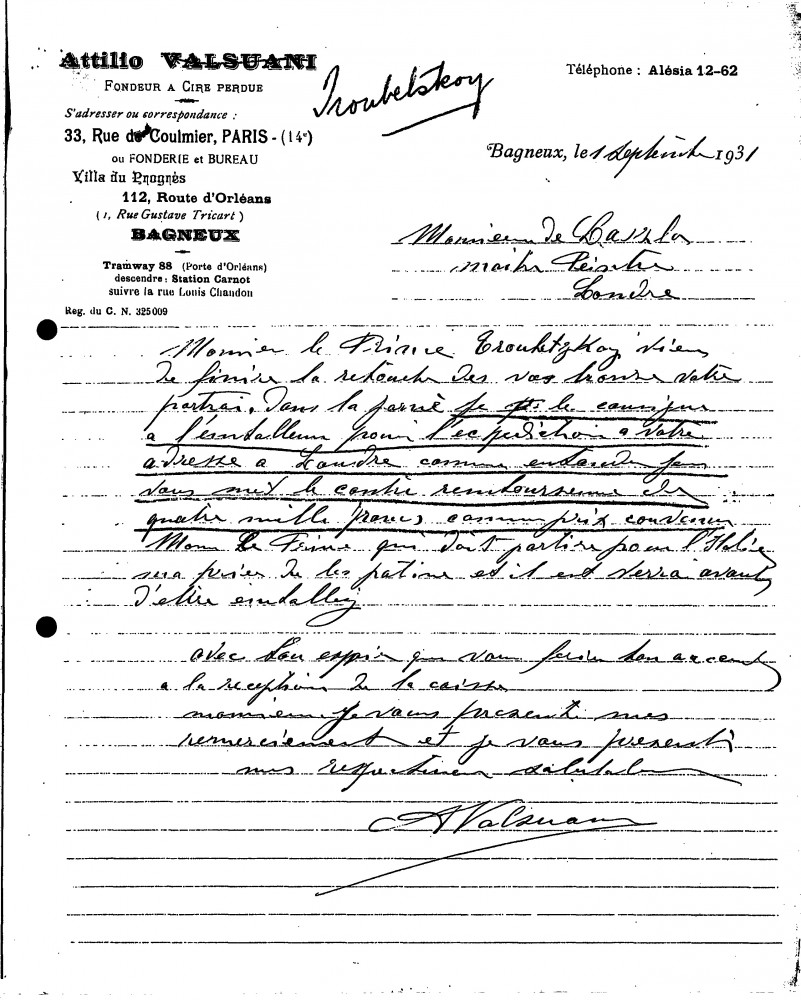 Attilio VALSUANI
FONDEUR A CIRE PERDUE
S'adresser ou correspondance :
33, Rue de Coulmier, PARIS - (14e)
ou FONDERIE et BUREAU
Villa du Progrès
112, Route d'Orléans
(1, Rue Gustave Tricart)
BAGNEUX
Tramway 88 (Porte d'Orléans)
descendre : Station Carnot
suivre la rue Louis Chandon
Reg. du C. N. 325009
Troubelskoy
Téléphone : Alésia 12-62
Bagneux, le 1 Septembre 1931
Monsieur de Laszlo
maitre Peintre
Londre
Monsier le Prince Troubetzkoy vien
de finire la retouche des vos bronze votre
portrai. Dans la le
a l'emballeur pour l'expedichion a votre
adresse a Londre comme
vous met le contre remboursement de
quatre mille francs comme prix convenu
Mons Le Prince qui doit partire pour l'Italie
sera prier de les patine et il est verra avant
d'etre emballez
avec bon espoir que vous bon
a la reception de la caisse
monsieur je vous present mes
remerciement et je vous present
mes salutation
A Valsuani